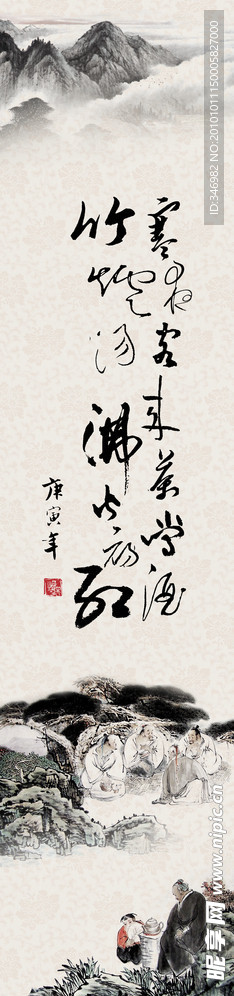 寒夜客来茶当酒
竹炉汤沸火初红
庚寅年
ID:346982 NO:20101011150005827000
昵享网 www.nipic.cn